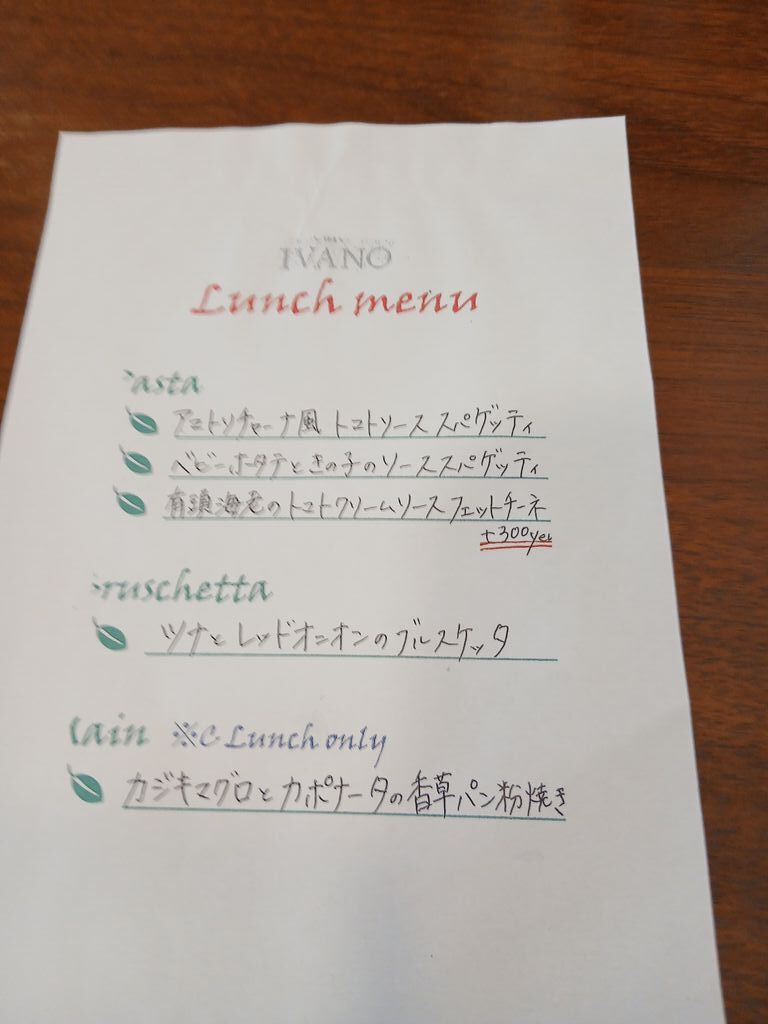 IVANO
Lunch menu
asta
アマトリチャーナ風 トマトソース スパゲッティ
ベビーホタテときの子のソーススパゲッティ
有頭海老のトマトクリームソースフェットチーネ
+300yen
ruschetta
ツナとレッドオニオンのブルスケッタ
ain ※C Lunch only
カジキマグロとカポナータの香草パン粉焼き